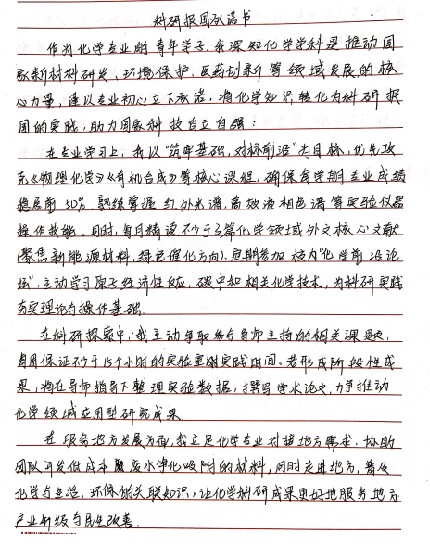 科研报国承诺书
作为化学专业的青年学子,我深知化学学科是推动国
家新材料研发、环境保护、医药创新等领域发展的核
心力量,谨以专业初心立下承诺,将化学知识转化为科研报
国的实践,助力国家科技自立自强:
在专业学习上,我以“筑牢基础,对标前沿”为目标,优先攻
克《物理化学》《有机合成》等核心课程,确保各学期专业成绩
稳居前50%,熟练掌握红外光谱,高效液相色谱等实验仪器
操作技能,同时,每月精读不少于3篇化学领域外文核心文献
聚焦新能源材料,绿色催化方向),定期参加校内“化学前沿论
坛”,主动学习原子经济性反应,碳中和相关化学技术,为科研实践
夯实理论与操作基础.
在科研探索中,我主动争取参与导师主持的相关课题,
每周保证不少于15个小时的实验室实践时间.若形成阶段性成
果,将在导师指导下整理实验数据,撰写学术论文,力争推动
化学领域应用型研究成果
在服务地方发展方面,我立足化学专业对接地方需求,协助
团队开发低成本 废水净化吸附的材料,同时走进地方,普及
化学与生活,环保等关联知识,让化学科研成果更好地服务地方
产业升级与民生改善.